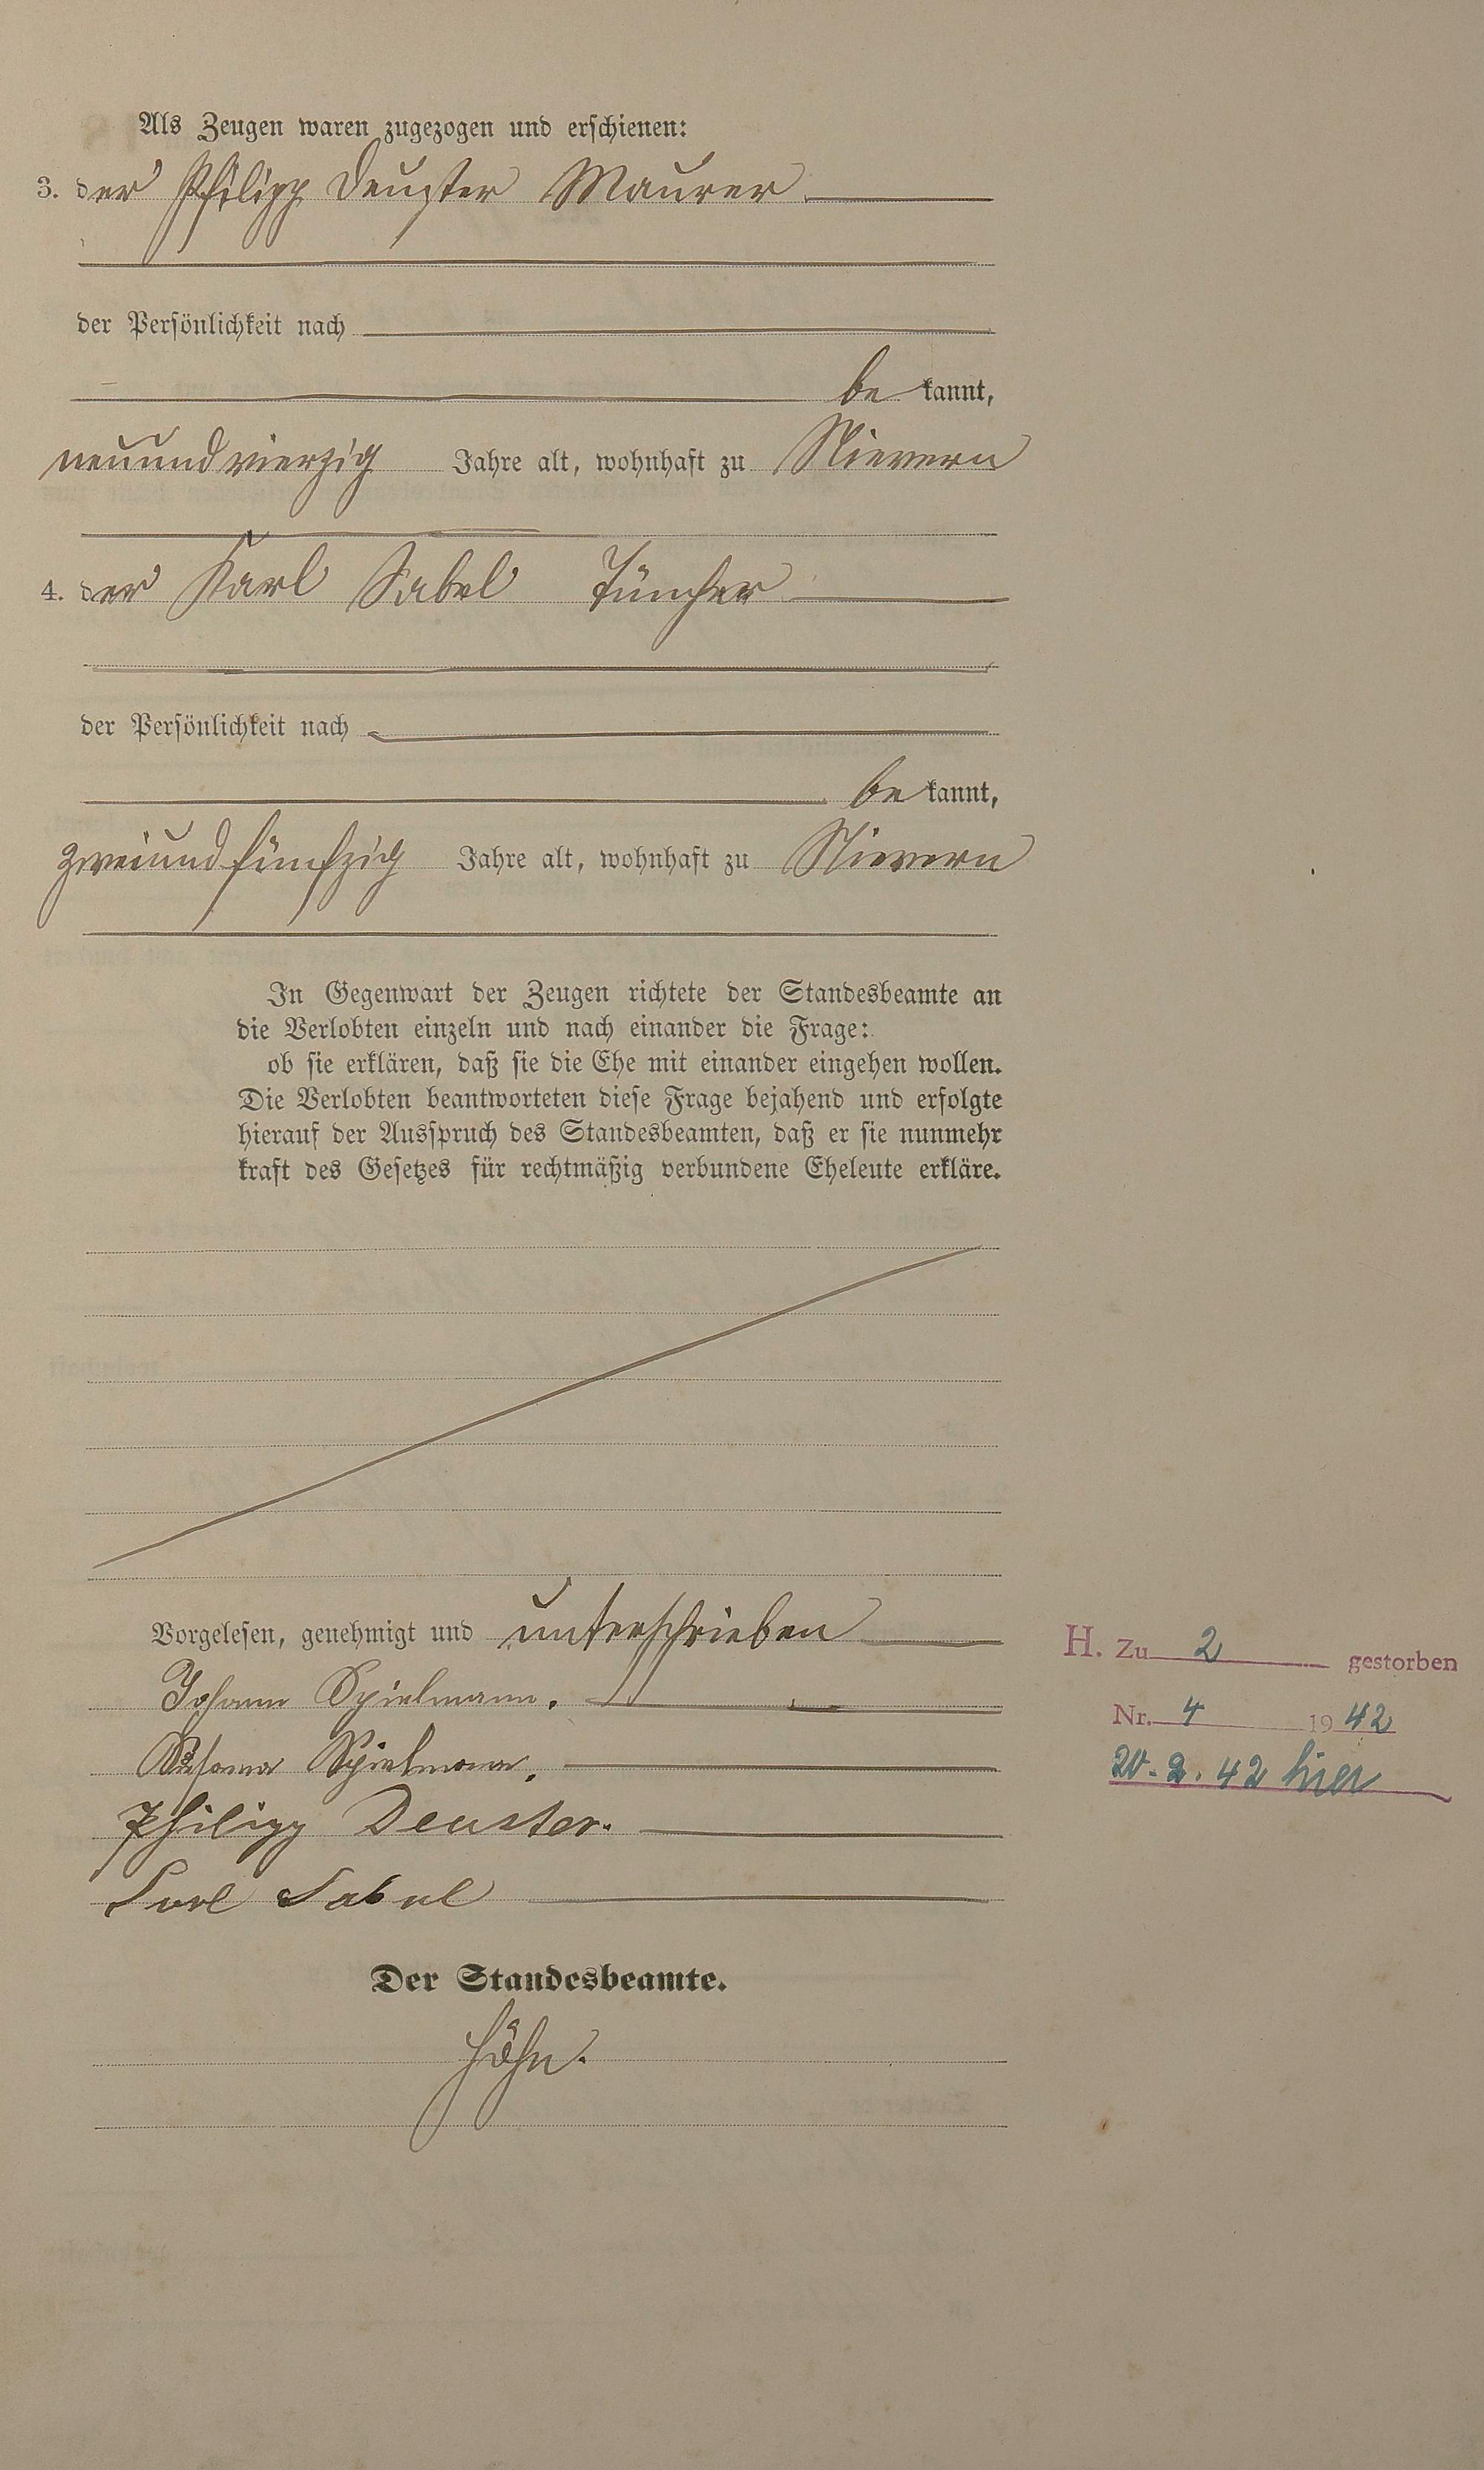 Als Zeugen waren zugezogen und erschienen:
3. der Philipp Deuster Maurer
der Persönlichkeit nach
be kannt,
neunundvierzig Jahre alt, wohnhaft zu Nievern
4. der Karl Sabel Tüncher
der Persönlichkeit nach
be kannt,
zweiundfünfzig Jahre alt, wohnhaft zu Nievern
In Gegenwart der Zeugen richtete der Standesbeamte an
die Verlobten einzeln und nach einander die Frage:
ob sie erklären, daß sie die Ehe mit einander eingehen wollen.
Die Verlobten beantworteten diese Frage bejahend und erfolgte
hierauf der Ausspruch des Standesbeamten, daß er sie nunmehr
kraft des Gesetzes für rechtmäßig verbundene Eheleute erkläre.
Vorgelesen, genehmigt und unterschrieben
Johann Spielmann.
Spielmann.
Philipp Deuster.
Karl Sabel
Der Standesbeamte.
Höhn.
H. Zu 2 gestorben
Nr. 4 1942
20.2.42 hier